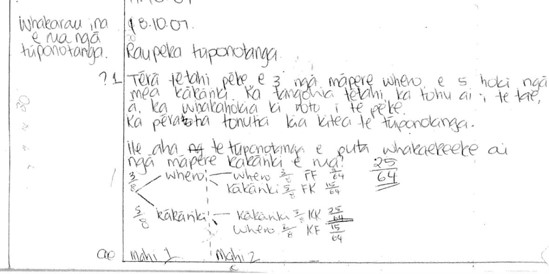 18.10.07.
Whakarau ina
e rua ngā
tūponotanga.
Raupeka tūponotanga.
?1 Tērā tētahi pēke e 3 ngā māpere whero, e 5 hoki ngā
mea kākāriki. Ka tangohia tētahi, ka tuhu ai i te tae,
ā, ka whakahokia ki roto i te pēke.
Ka pēratia tonutia kia kitea te tūponotanga.
He aha te tūponotanga e puta whakaekeeke ai
ngā māpere kākāriki e rua? 25/64
3/8 whero whero 3/8 FF 9/64
kākāriki 5/8 FK 15/64
5/8 kākāriki kākāriki 5/8 KK 25/64
whero 3/8 KF 15/64
mahi 1 mahi 2